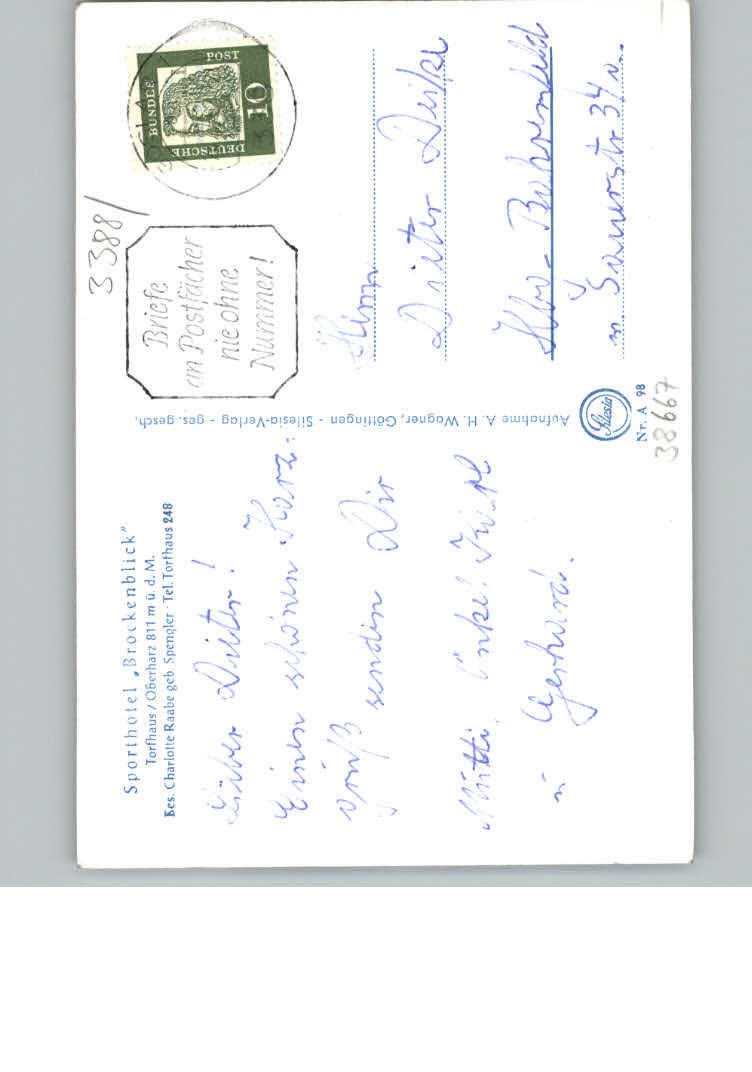 Sporthotel „Brockenblick"
Torfhaus / Oberharz 811 m ü. d. M.
Bes. Charlotte Raabe geb. Spengler · Tel. Torfhaus 248
Lieber Dieter!
Einen schönen Harz-
gruß senden Dir
Mutti, Onkel Karl
u Gerhard.
Aufnahme A. H. Wagner, Göttingen - Silesia-Verlag - ges. gesch.
Silesia
Nr. A 98
38667
3388/
Briefe
an Postfächer
nie ohne
Nummer!
DEUTSCHE BUNDESPOST
10
Herrn
Dieter
Hbg - Bahrenfeld
34